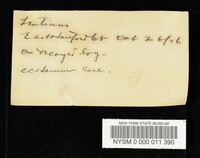 Lentinus
East Hartford Ct Oct 26/06
On decayed log.
CC Hanmer Coll.
NEW YORK STATE MUSEUM
NYSM 0 000 011 390